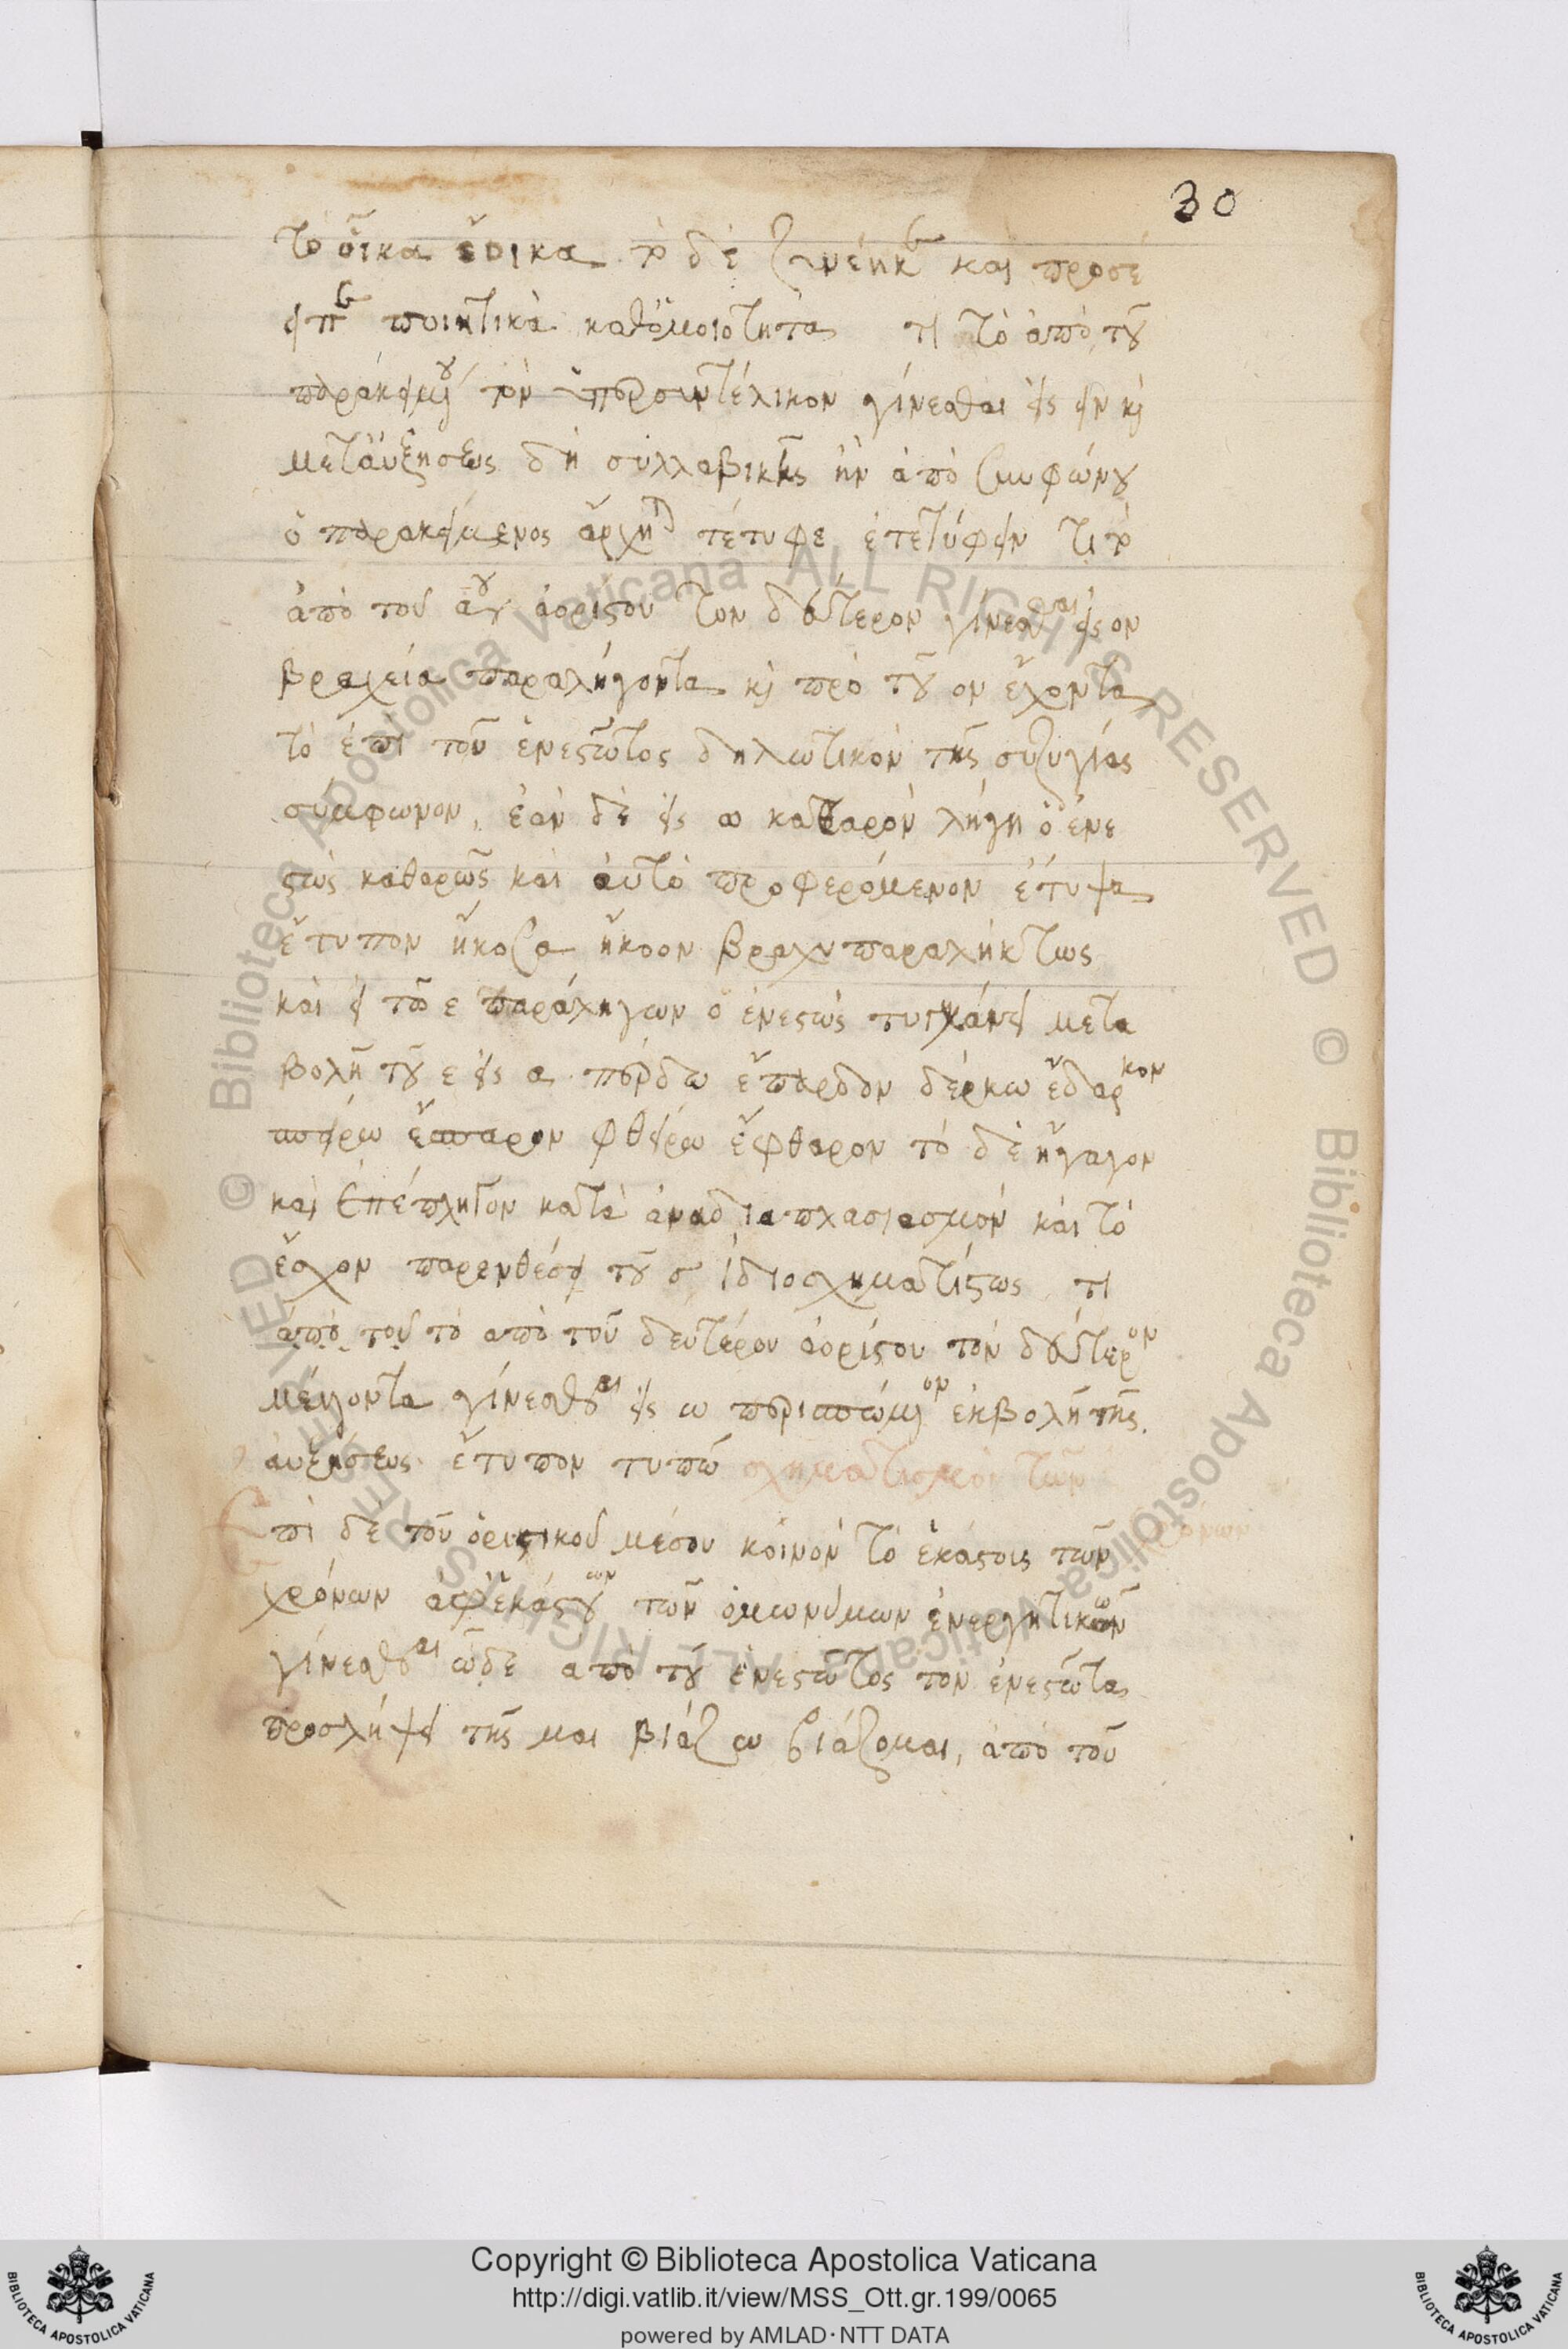 30
τὸ οἶκα ἔοικα τὸ δὲ συνέηκε καὶ προσέ
ειπε ποιητικὰ καθ' ὁμοιότητα τι τὸ ἀπὸ τοῦ
παρακειμένου τὸν ὑπερσυντέλικον γίνεσθαι εἰς ειν καὶ
μετ' αὐξήσεως δὴ συλλαβικῆς ἢν ἀπὸ συμφώνου
ὁ παρακείμενος ἄρχηται τέτυφα ἐτετύφειν τι τὸ
ἀπὸ τοῦ αου ἀορίστου τὸν δεύτερον γίνεσθαι εἰς ον
βραχεία παραλήγοντα καὶ πρὸ τοῦ ον ἔχοντα
τὸ ἐπὶ τοῦ ἐνεστῶτος δηλωτικὸν τῆς συζυγίας
σύμφωνον, ἐὰν δὲ εἰς ω καθαρὸν λήγη ὁ ἐνε
στὼς καθαρῶς καὶ αὐτὸ προφερόμενον ἔτυψα
ἔτυπον ἤκουσα ἤκοον βραχυπαραλήκτως
καὶ εἰ τῶ ε παραλήγων ὁ ἐνεστὼς τυγχάνει μετα
βολῆ τοῦ ε εἰς α πέρδω ἔπαρδον δέρκω ἔδαρκον
σπείρω ἔσπαρον φθείρω ἔφθαρον τὸ δὲ ἤγαγον
καὶ ἐπέπληγον κατὰ ἀναδιπλασιασμὸν καὶ τὸ
ἔσχον παρενθέσει τοῦ σ ἰδιοσχηματίστως τι
ἀπὸ τοῦ τὸ ἀπὸ τοῦ δευτέρου ἀορίστου τὸν δεύτερον
μέλλοντα γίνεσθαι εἰς ω περισπώμενον ἐκβολῆ τῆς
αὐξήσεως ἔτυπον τυπῶ σχηματισμὸν τῶν
χρόνων
Ἐπὶ δὲ τοῦ ὁριστικοῦ μέσου κοινὸν τὸ ἑκάστοις τῶν
χρόνων ἀφ' ἑκάστου τῶν ὁμωνύμων ἐνεργητικῶν
γίνεσθαι ὧδε ἀπὸ τοῦ ἐνεστῶτος τὸν ἐνεστῶτα
προσλήψει τῆς μαι βιάζω βιάζομαι, ἀπὸ τοῦ
© Biblioteca Apostolica Vaticana ALL RIGHTS RESERVED
© Biblioteca Apostolica Vaticana ALL RIGHTS RESERVED
BIBLIOTECA APOSTOLICA VATICANA
Copyright © Biblioteca Apostolica Vaticana
http://digi.vatlib.it/view/MSS_Ott.gr.199/0065
powered by AMLAD·NTT DATA
BIBLIOTECA APOSTOLICA VATICANA